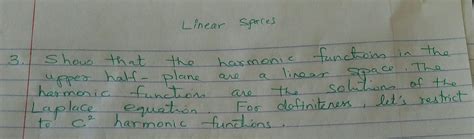 Linear Spaces
3. Show that the harmonic functions in the
upper half-plane are a linear space. The
harmonic functions are the solutions of the
Laplace equation. For definiteness, let's restrict
to C² harmonic functions.